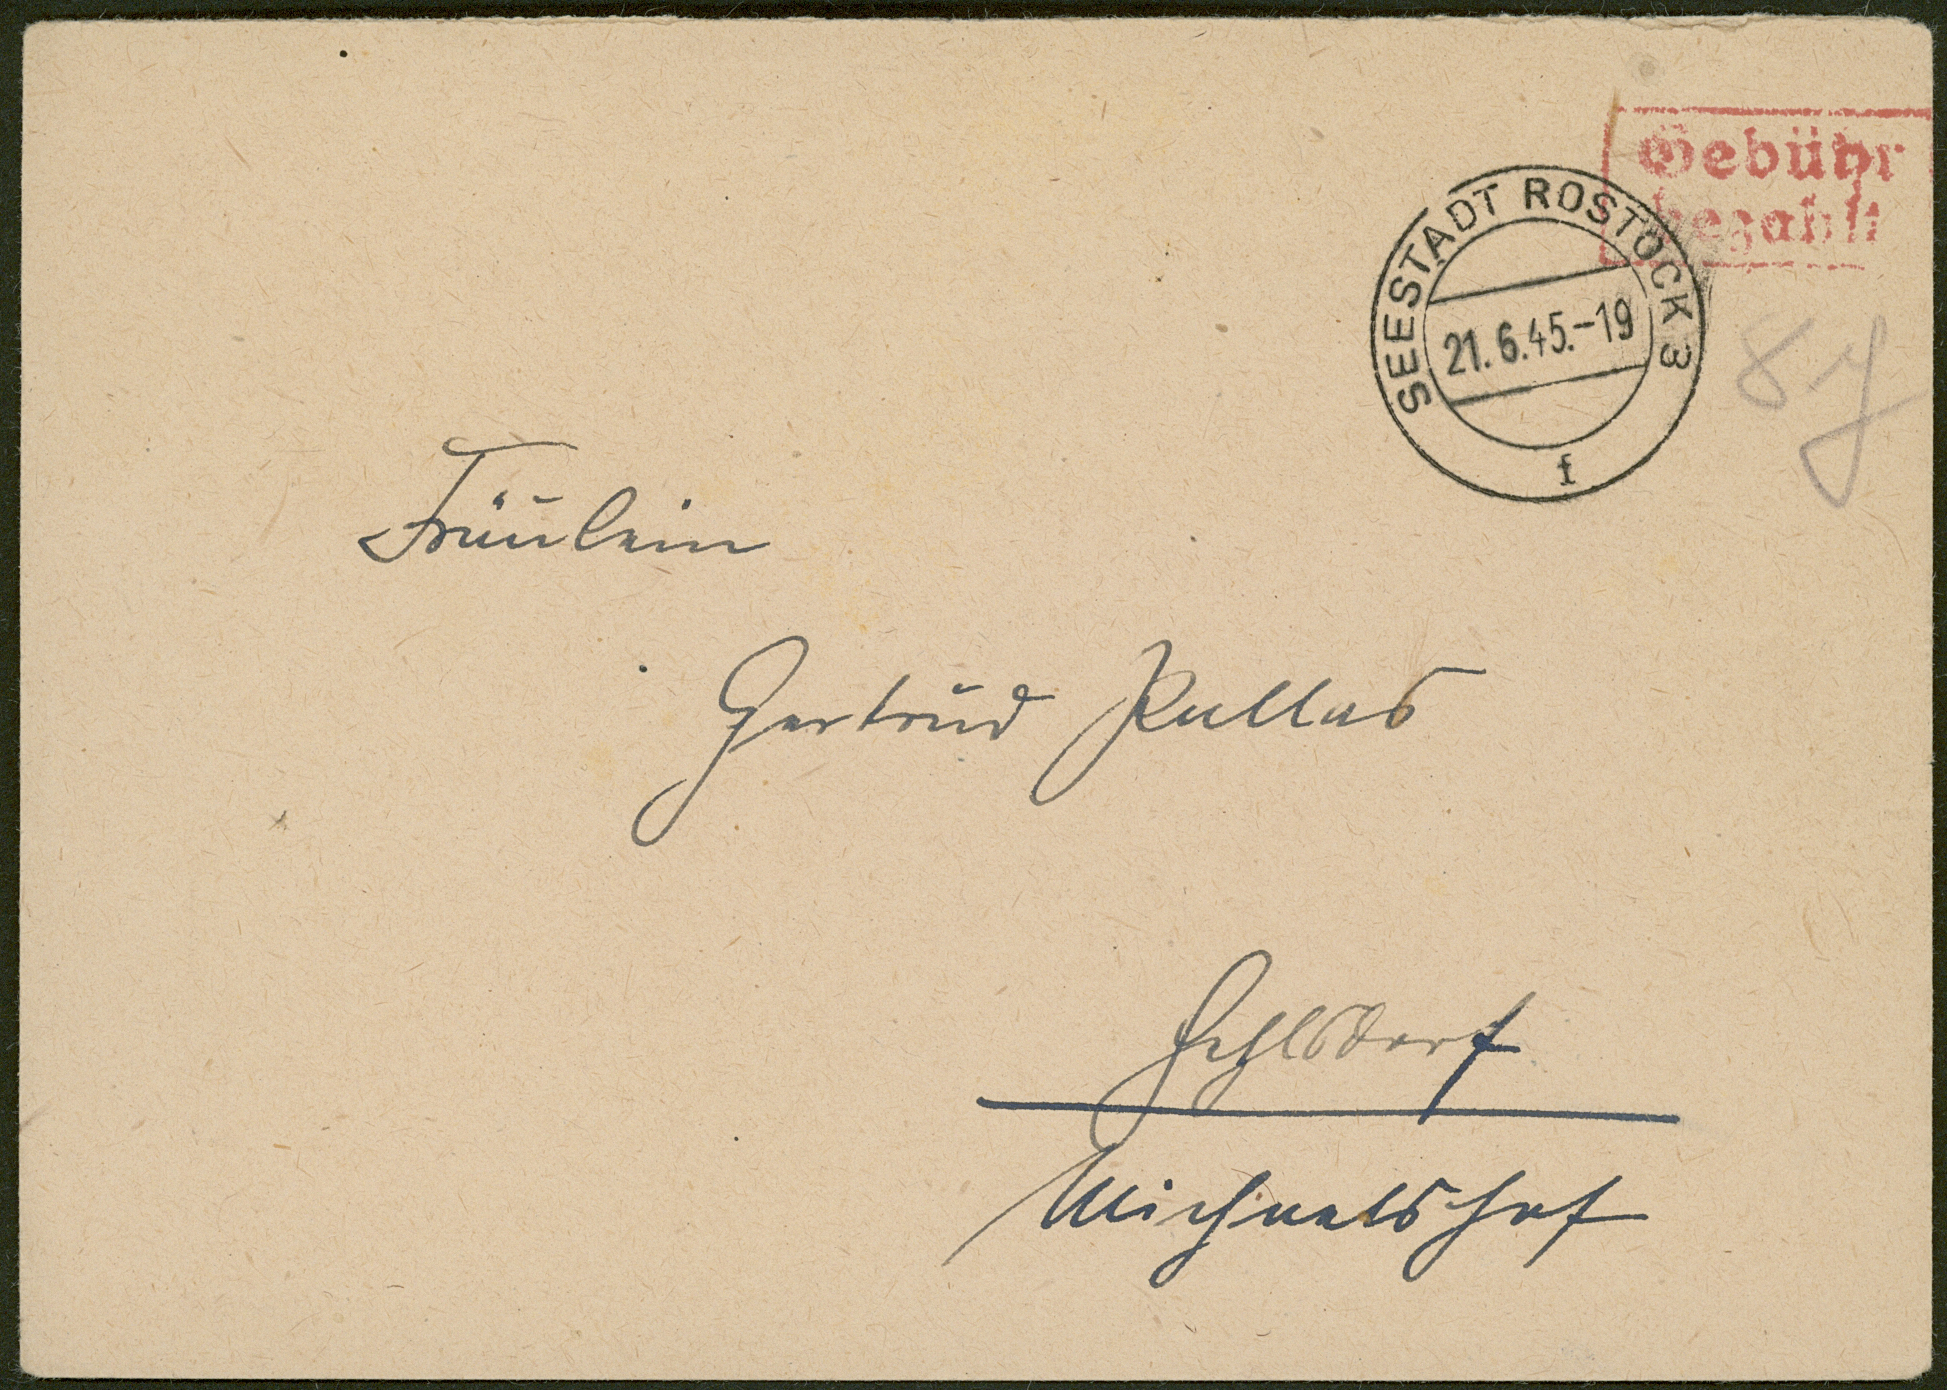 Gebühr
bezahlt
SEESTADT ROSTOCK 3
21.6.45.-19
f
8
Fräulein
Gertrud
Gehlsdorf
Michaelshof